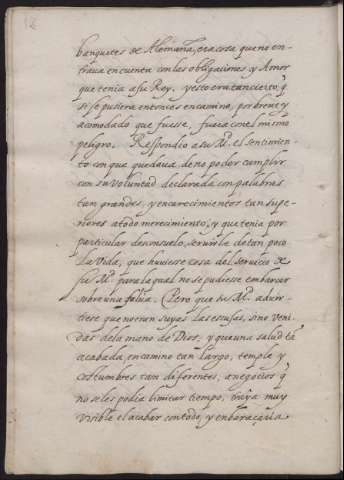 12
banquetes de Alemaña, era cosa que no en-
trava en cuenta con las obligaciones y Amor
que tenia a su Rey. y esto era tan cierto, q̃
si se pusiera entonces en camino, por breve y
acomodado que fuesse, fuera con el mismo
peligro. Respondio a su Mͩ. el sentimien-
to con que quedava, de no poder cumplir
con su voluntad declarada con palabras
tan grandes, y encarecimientos tan supe-
riores a todo merecimiento, y que tenia por
particular desconsuelo, servirla de tan poco
la Vida, que huviesse cosa del servicio de
su Mͩ. para la qual no se pudiesse embarcar
sobre una falua. Pero que su Mͩ. advir-
tiese que no eran suyas las escusas, sino veni-
das dela mano de Dios; y que una salud tã
acabada, en camino tan largo, temple y
costumbres tam diferentes, a negocios q̃
no se les podia limitar tiempo, traya muy
visible el acabar con todo, y enbaraçarla